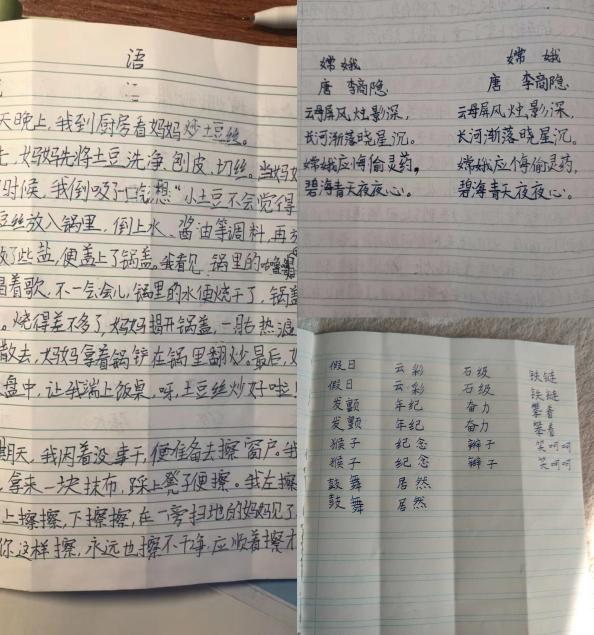 语
天晚上,我到厨房看妈妈炒土豆丝。
先,妈妈先将土豆洗净、刨皮、切丝。当妈妈
时候,我倒吸了一口气,想“小土豆不会觉得
豆丝放入锅里,倒上水、酱油等调料,再放
放了些盐,便盖上了锅盖。我看见,锅里的
唱着歌。不一会会儿,锅里的水便烧干了,锅盖
。烧得差不多了,妈妈揭开锅盖,一股热浪
散去,妈妈拿着锅铲在锅里翻炒。最后,
盘中,让我端上饭桌。呀,土豆丝炒好啦
期天,我闲着没事干,便准备去擦窗户。我
拿来一块抹布,踩上凳子便擦。我左擦
上擦擦,下擦擦,在一旁扫地的妈妈见了
你这样擦,永远也擦不干净,应顺着擦才
嫦娥
唐 李商隐
云母屏风灶影深,
长河渐落晓星沉。
嫦娥应悔偷灵药,
碧海青天夜夜心。
嫦娥
唐 李商隐
云母屏风灶影深,
长河渐落晓星沉。
嫦娥应悔偷灵药,
碧海青天夜夜心。
假日 云彩 石级 铁链
假日 云彩 石级 铁链
发颤 年纪 奋力 攀着
发颤 年纪 奋力 攀着
猴子 纪念 辫子 笑呵呵
猴子 纪念 辫子 笑呵呵
鼓舞 居然
鼓舞 居然